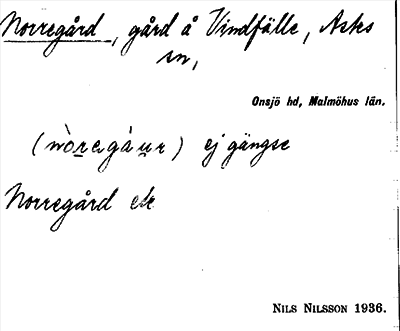 Norregård, gård å Vindfälle, Asks
sn,
Onsjö hd, Malmöhus län.
(nòregàur) ej gängse
Norregård ek
NILS NILSSON 1936.